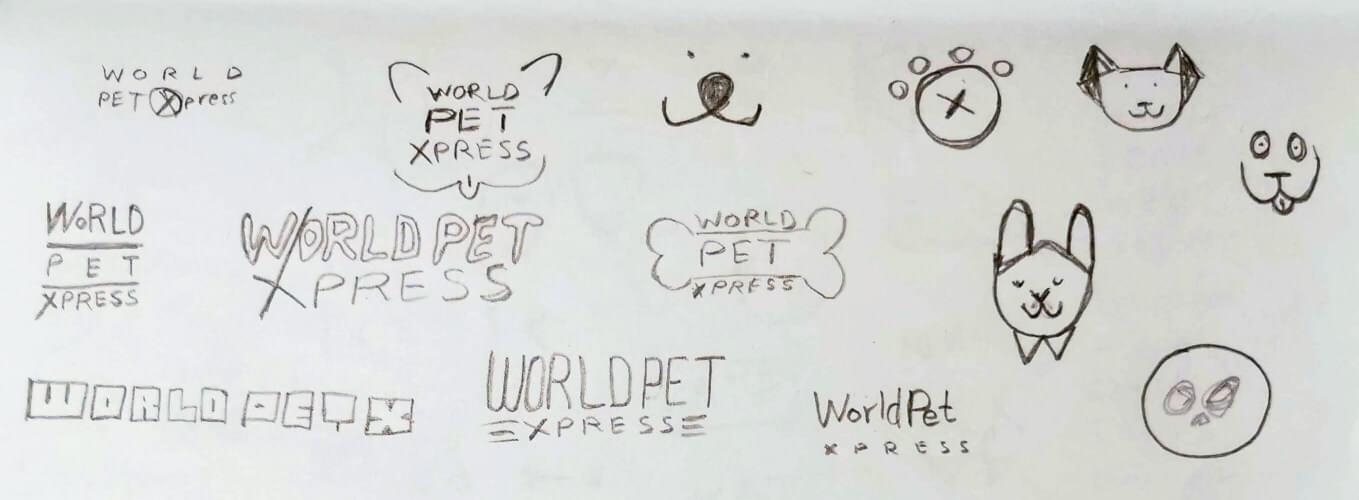 WORLD
PET Xpress
WORLD
PET
XPRESS
X
WORLD
PET
XPRESS
WORLD PET
XPRESS
WORLD
PET
XPRESS
WORLD PET X
WORLD PET
XPRESS
WorldPet
XPRESS